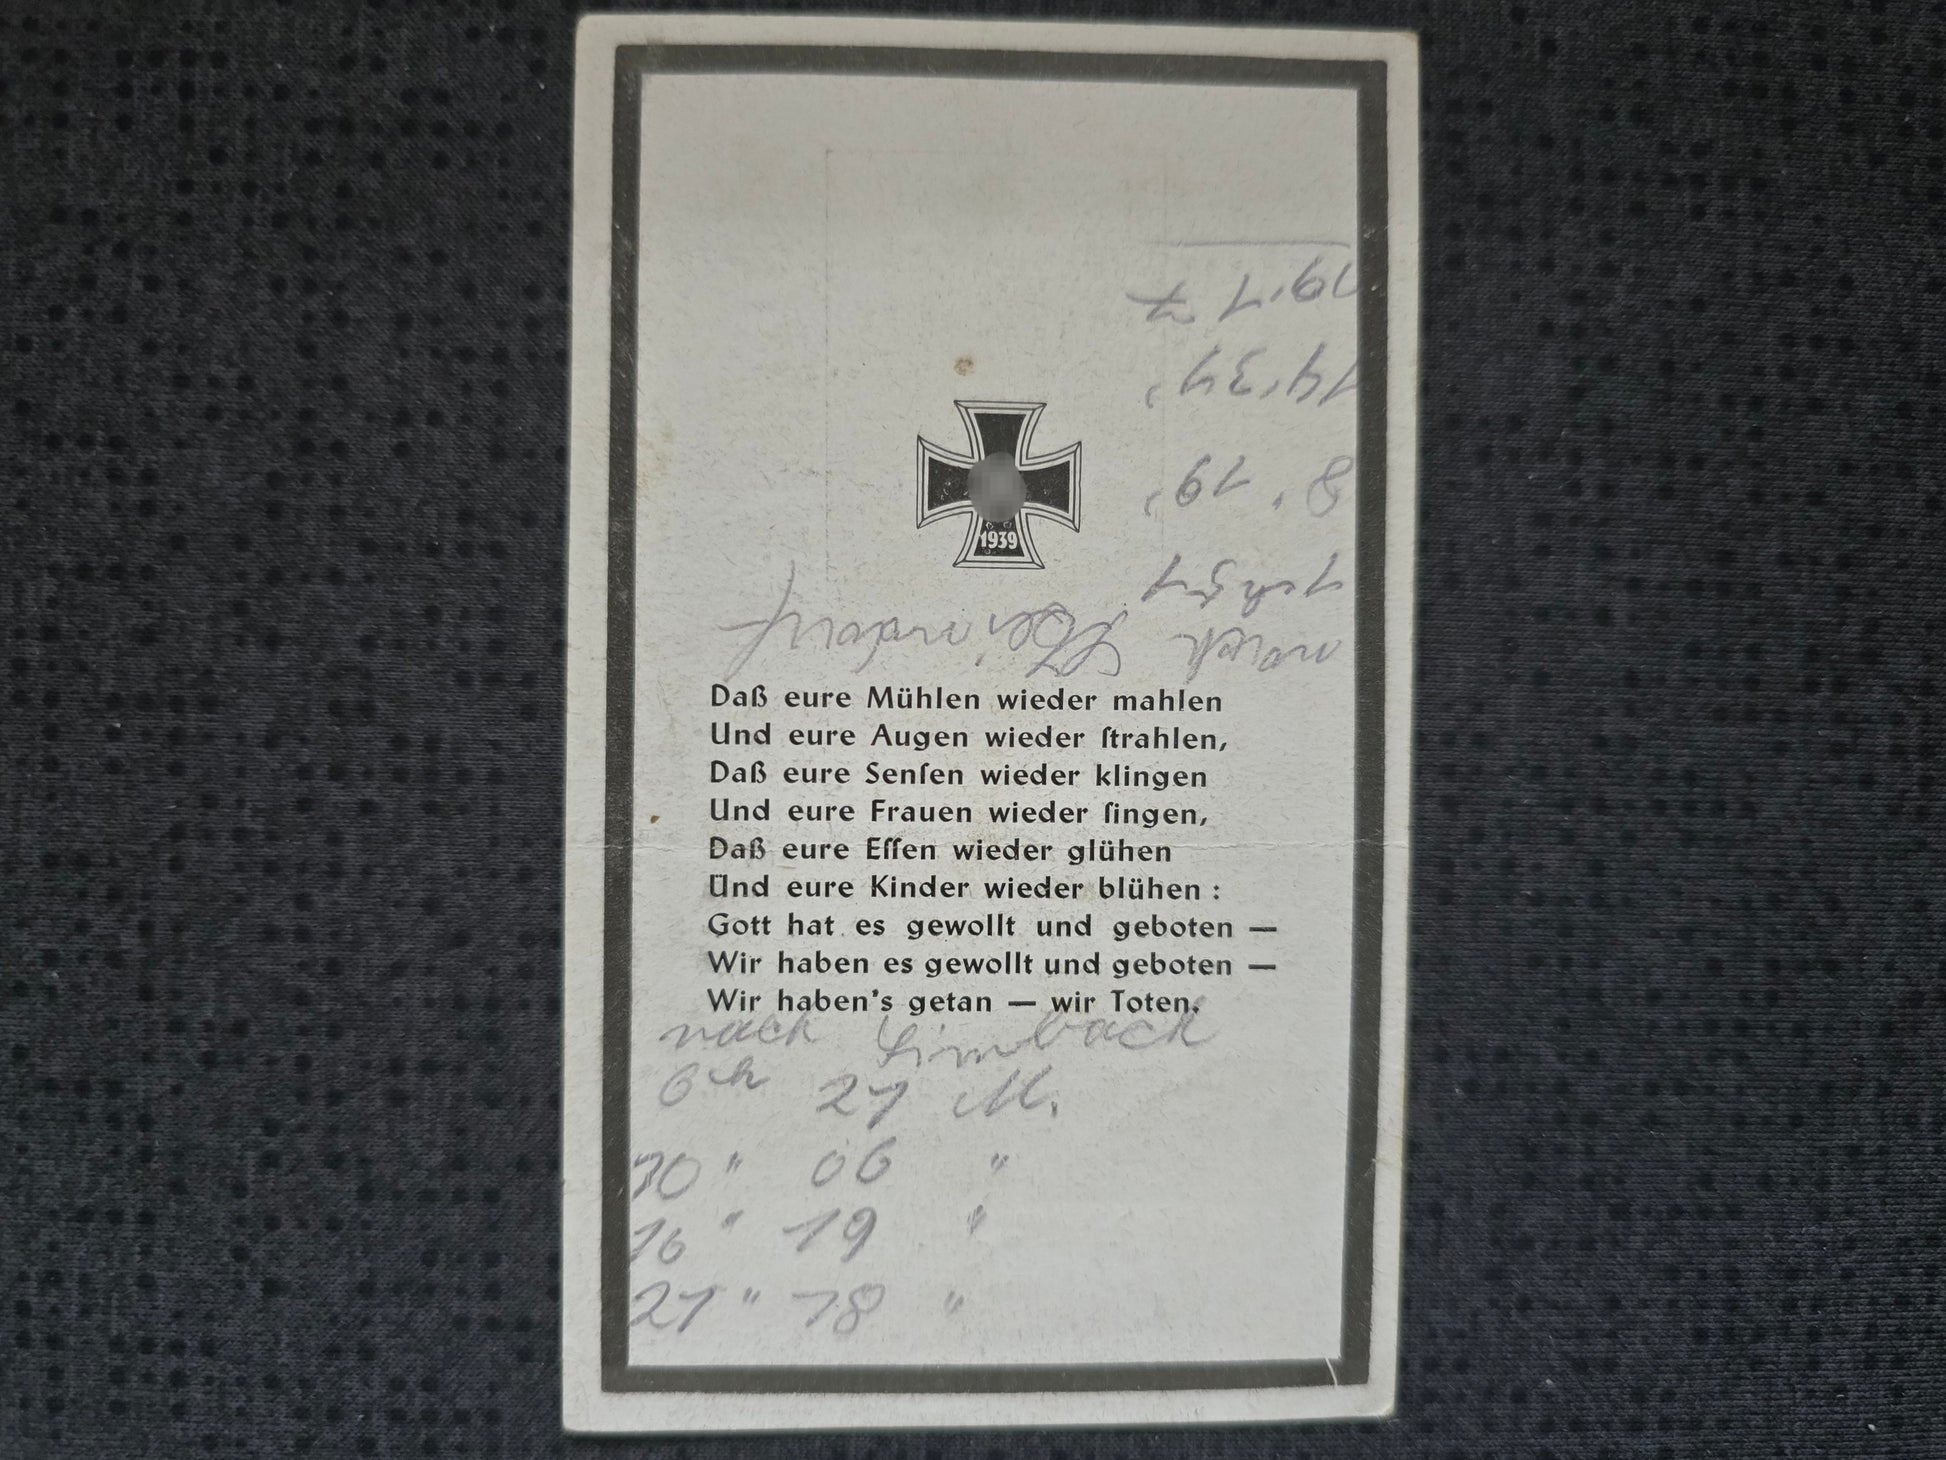 1939
Daß eure Mühlen wieder mahlen
Und eure Augen wieder ſtrahlen,
Daß eure Senſen wieder klingen
Und eure Frauen wieder ſingen,
Daß eure Eſſen wieder glühen
Und eure Kinder wieder blühen :
Gott hat es gewollt und geboten —
Wir haben es gewollt und geboten —
Wir haben's getan — wir Toten.
nach Limbach
6 h 21 M.
10 " 06 "
16 " 19 "
21 " 18 "
nach
8' 19'
14'37'
19'17